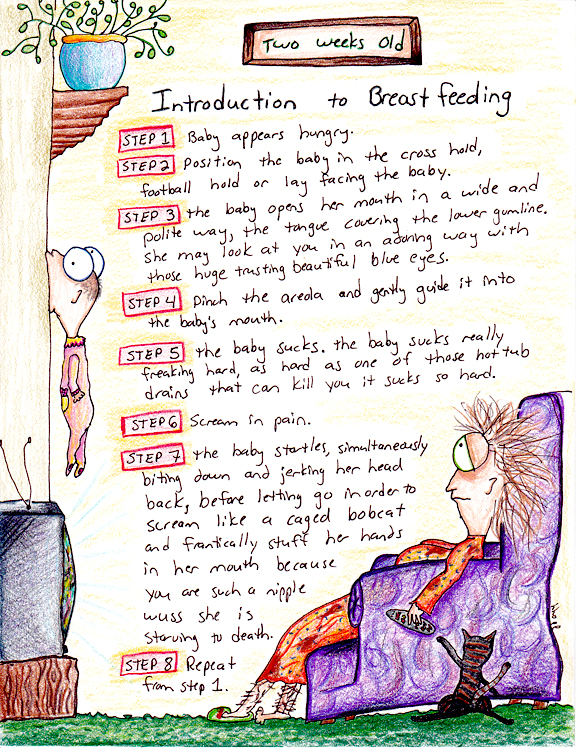 Two weeks Old
Introduction to Breastfeeding
STEP 1 Baby appears hungry.
STEP 2 Position the baby in the cross hold,
football hold or lay facing the baby.
STEP 3 the baby opens her mouth in a wide and
polite way, the tongue covering the lower gumline.
She may look at you in an adoring way with
those huge trusting beautiful blue eyes.
STEP 4 Pinch the areola and gently guide it into
the baby's mouth.
STEP 5 the baby sucks. the baby sucks really
freaking hard, as hard as one of those hot tub
drains that can kill you it sucks so hard.
STEP 6 Scream in pain.
STEP 7 the baby startles, simultaneously
biting down and jerking her head
back, before letting go in order to
scream like a caged bobcat
and frantically stuff her hands
in her mouth because
you are such a nipple
wuss she is
starving to death.
STEP 8 Repeat
from step 1.